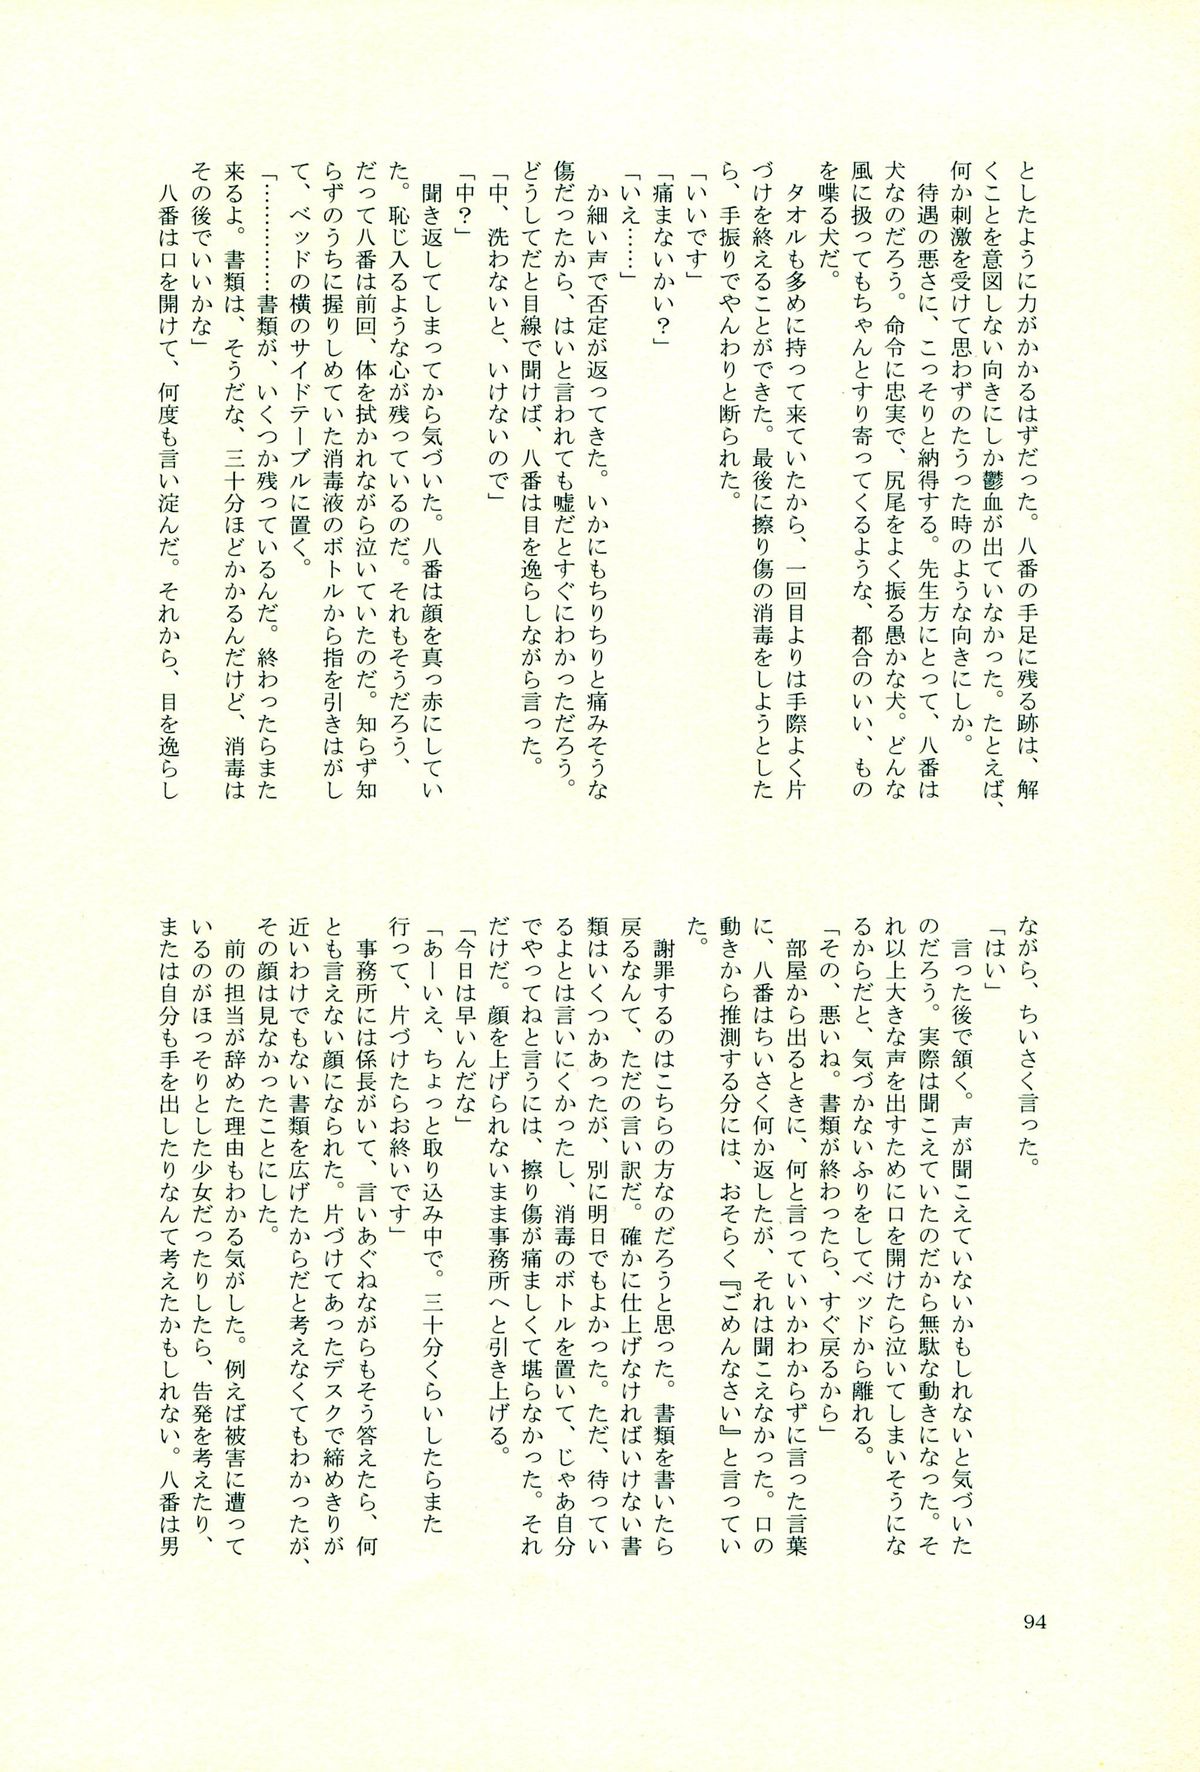 としたように力がかかるはずだった。八番の手足に残る跡は、解
くことを意図しない向きにしか鬱血が出ていなかった。たとえば、
何か刺激を受けて思わずのたうった時のような向きにしか。
　待遇の悪さに、こっそりと納得する。先生方にとって、八番は
犬なのだろう。命令に忠実で、尻尾をよく振る愚かな犬。どんな
風に扱ってもちゃんとすり寄ってくるような、都合のいい、もの
を喋る犬だ。
　タオルも多めに持って来ていたから、一回目よりは手際よく片
づけを終えることができた。最後に擦り傷の消毒をしようとした
ら、手振りでやんわりと断られた。
「いいです」
「痛まないかい？」
「いえ……」
　か細い声で否定が返ってきた。いかにもちりちりと痛みそうな
傷だったから、はいと言われても嘘だとすぐにわかっただろう。
どうしてだと目線で聞けば、八番は目を逸らしながら言った。
「中、洗わないと、いけないので」
「中？」
　聞き返してしまってから気づいた。八番は顔を真っ赤にしてい
た。恥じ入るような心が残っているのだ。それもそうだろう、
だって八番は前回、体を拭かれながら泣いていたのだ。知らず知
らずのうちに握りしめていた消毒液のボトルから指を引きはがし
て、ベッドの横のサイドテーブルに置く。
「……………書類が、いくつか残っているんだ。終わったらまた
来るよ。書類は、そうだな、三十分ほどかかるんだけど、消毒は
その後でいいかな」
　八番は口を開けて、何度も言い淀んだ。それから、目を逸らし
ながら、ちいさく言った。
「はい」
　言った後で頷く。声が聞こえていないかもしれないと気づいた
のだろう。実際は聞こえていたのだから無駄な動きになった。そ
れ以上大きな声を出すために口を開けたら泣いてしまいそうにな
るからだと、気づかないふりをしてベッドから離れる。
「その、悪いね。書類が終わったら、すぐ戻るから」
　部屋から出るときに、何と言っていいかわからずに言った言葉
に、八番はちいさく何か返したが、それは聞こえなかった。口の
動きから推測する分には、おそらく『ごめんなさい』と言ってい
た。
　謝罪するのはこちらの方なのだろうと思った。書類を書いたら
戻るなんて、ただの言い訳だ。確かに仕上げなければいけない書
類はいくつかあったが、別に明日でもよかった。ただ、待ってい
るよとは言いにくかったし、消毒のボトルを置いて、じゃあ自分
でやってねと言うには、擦り傷が痛ましくて堪らなかった。それ
だけだ。顔を上げられないまま事務所へと引き上げる。
「今日は早いんだな」
「あーいえ、ちょっと取り込み中で。三十分くらいしたらまた
行って、片づけたらお終いです」
　事務所には係長がいて、言いあぐねながらもそう答えたら、何
とも言えない顔になられた。片づけてあったデスクで締めきりが
近いわけでもない書類を広げたからだと考えなくてもわかったが、
その顔は見なかったことにした。
　前の担当が辞めた理由もわかる気がした。例えば被害に遭って
いるのがほっそりとした少女だったりしたら、告発を考えたり、
または自分も手を出したりなんて考えたかもしれない。八番は男
94